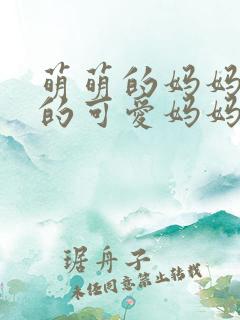 萌萌的妈妈
的可爱妈妈
琚舟子
未经同意禁止转载